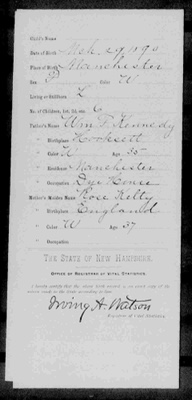 Child's Name
Date of Birth Mch. 29 1890
Place of Birth Manchester
Sex Color W
Living or Stillborn L
No. of Children, 1st, 2d, etc. 6
Father's Name Wm T Kennedy
" Birthplace Hooksett
" Color W Age 35
" Residence Manchester
" Occupation Dye House
Mother's Maiden Name Rose Kilty
" Birthplace England
" Color W Age 37
" Occupation
THE STATE OF NEW HAMPSHIRE.
OFFICE OF REGISTRAR OF VITAL STATISTICS.
I hereby certify that the above birth record is an exact copy of the
Irving A. Watson
Registrar of Vital Statistics.